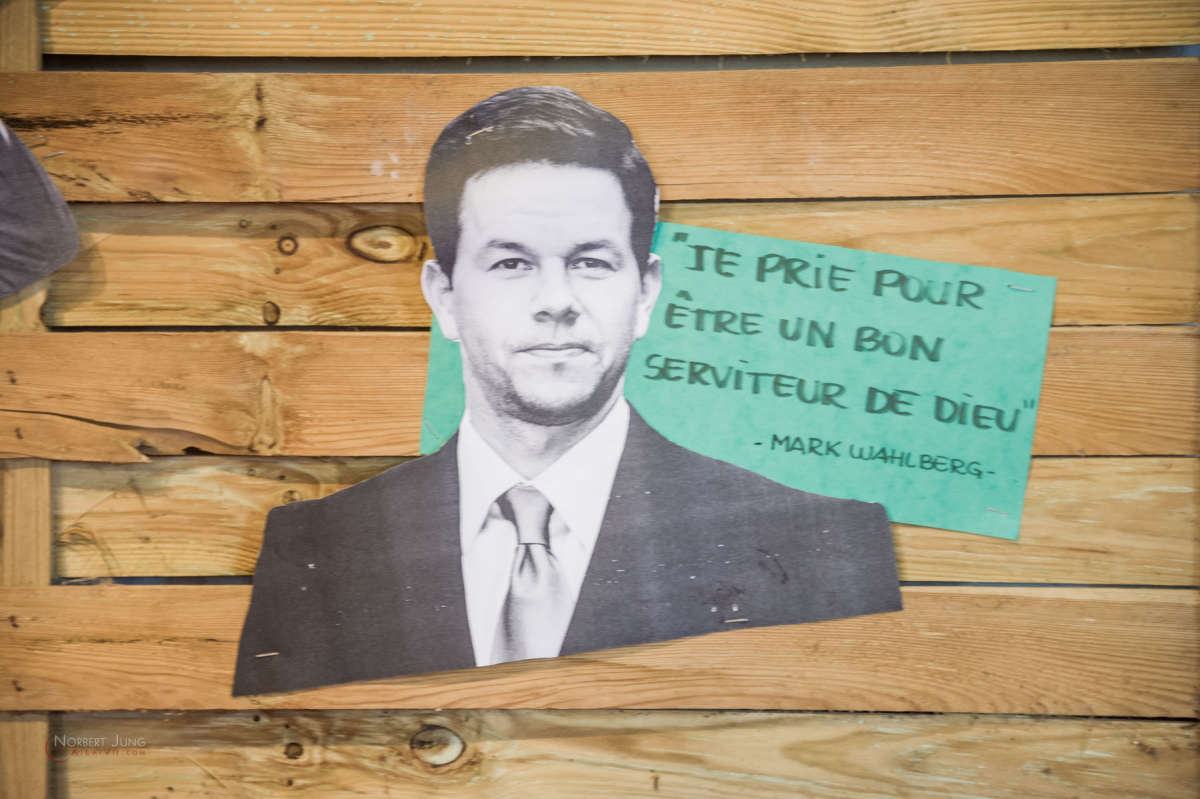 "JE PRiE POUR
ÊTRE UN BON
SERViTEUR DE DiEU"
- MARK WAHLBERG-
NORBERT JUNG